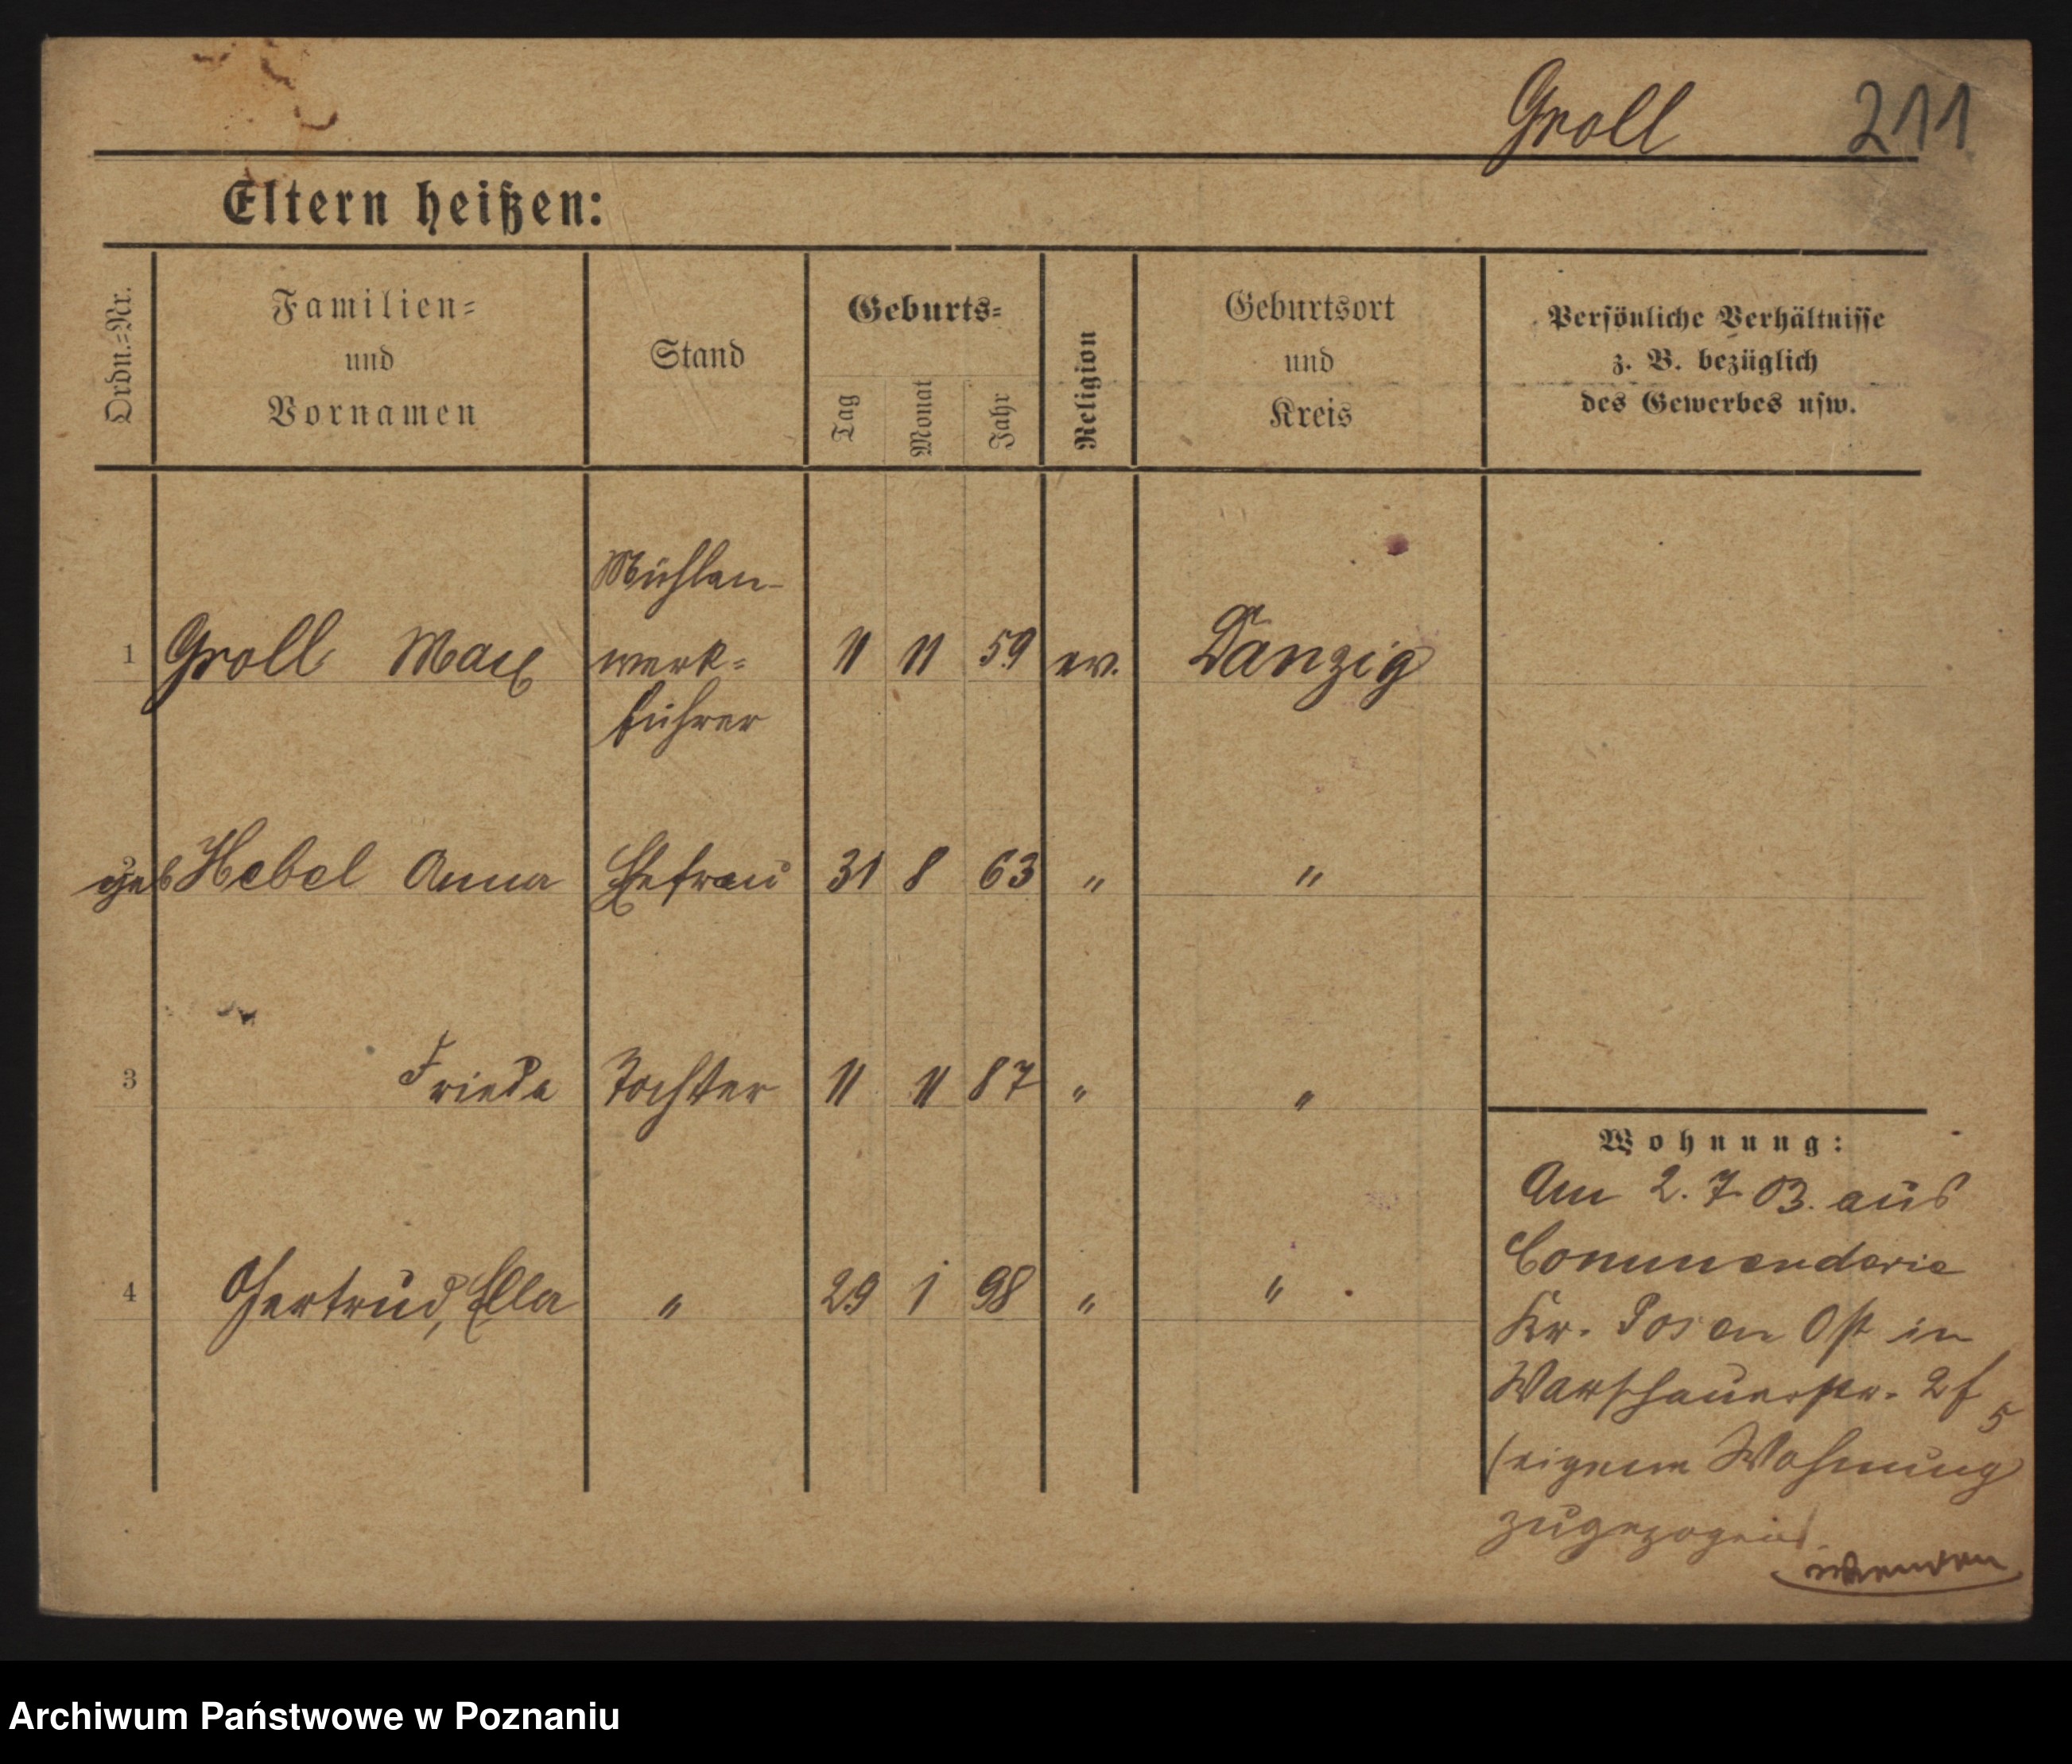 Groll 211
Eltern heißen:
Ordn.-Nr. Familien- und Vornamen Stand Geburts- Tag Monat Jahr Religion Geburtsort und Kreis Persönliche Verhältnisse z. B. bezüglich des Gewerbes usw.
Mühlen-
1 Groll Max werk- 11 11 59 ev. Danzig
führer
2 geb Hebel Anna Ehefrau 31 8 63 " "
3 Frieda Tochter 11 11 87 " "
4 Gertrud, Ella " 29 1 98 " "
Wohnung:
Am 2. 7. 03. aus
Commenderie
Kr. Posen Ost in
Warschauerstr. 2f
5
(eigene Wohnung
zugezogen
Archiwum Państwowe w Poznaniu